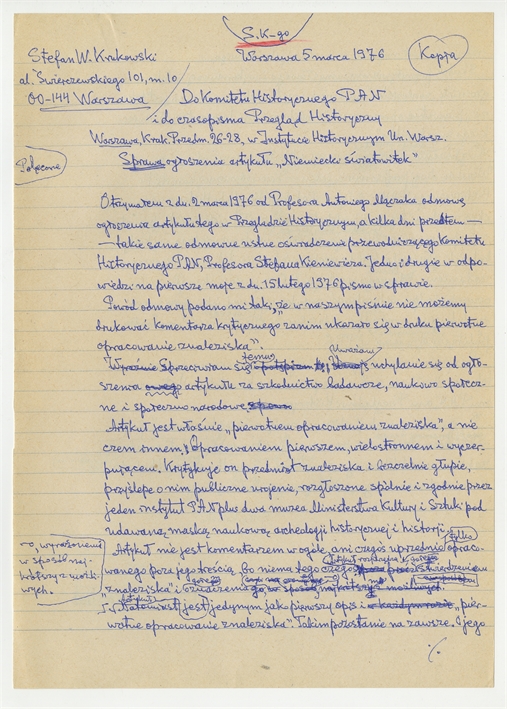 S. K-go
Stefan W. Krukowski
Warszawa 5 marca 1976
Kopia
al. Świerczewskiego 101, m. 10
00-144 Warszawa
Do Komitetu Historycznego PAN
i do czasopisma Przegląd Historyczny
Warszawa, Krak. Przedm. 26-28, w Instytucie Historycznym Un. Warsz.
Sprawa ogłoszenia artykułu „Niemiecki światowitek”
Polecone
Otrzymałem z du. 2 marca 1976 od Profesora Antoniego Mączaka odmowę
ogłoszenia artykułu tego w Przeglądzie Historycznym, a kilka dni przedtem —
— takie same odmowne ustne oświadczenie przewodniczącego Komitetu
Historycznego PAN, Profesora Stefana Kieniewicza. Jedno i drugie w odpo-
wiedzi na pierwsze moje z du. 15 lutego 1976 pismo w sprawie.
Powód odmowy podano mi tak, „że w naszym piśmie nie możemy
drukować komentarza krytycznego zanim ukazało się w druku pierwotne
opracowanie znaleziska”.
Wyraźnie sprzeciwiam się temu Uważam uchylanie się od ogło-
szenia owego artykułu za szkodnictwo badawcze, naukowo społecz-
ne i społeczno narodowe
Artykuł jest właśnie „pierwotnem opracowaniem znaleziska”, a nie
czem innem, Opracowaniem pierwszem, wielostronnem i wyczer-
pującem. Krytykuje on przedmiot znaleziska i bezczelnie głupie,
przyślepe o nim publiczne urojenie, rozgłoszone spólnie i zgodnie przez
jeden instytut PAN plus dwa muzea Ministerstwa Kultury i Sztuki pod
udawaną maską naukową archeologji historycznej i historji.
Artykuł nie jest komentarzem w ogóle, ani czegoś uprzednio tylko opraco-
wanego poza jego treścią, bo niema tego czego
„znaleziska” i oznaczenia go
o, wyrażonemi
w sposób naj-
krótszy z możli-
wych.
Natomiast jest jedynym jako pierwszy opis i „pier-
wotne opracowanie znaleziska”. Takim pozostanie na zawsze. I jego
./.